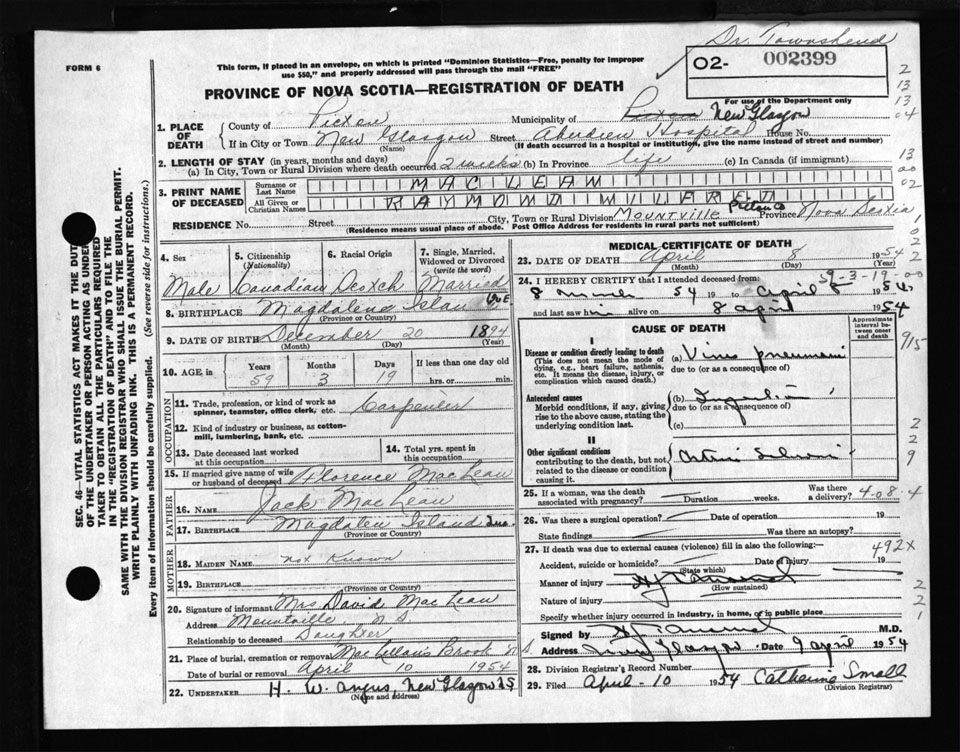 Dr. Townshend
FORM 6
This form, if placed in an envelope, on which is printed "Dominion Statistics—Free, penalty for improper use $50," and properly addressed will pass through the mail "FREE"
02- 002399
PROVINCE OF NOVA SCOTIA—REGISTRATION OF DEATH
For use of the Department only
1. PLACE OF DEATH
County of Pictou Municipality of Pictou New Glasgow
If in City or Town New Glasgow Street Aberdeen Hospital House No.
(Name) (If death occurred in a hospital or institution, give the name instead of street and number)
2. LENGTH OF STAY (in years, months and days)
(a) In City, Town or Rural Division where death occurred 2 weeks (b) In Province life (c) In Canada (if immigrant)
3. PRINT NAME OF DECEASED
Surname or Last Name MACLEAN
All Given or Christian Names RAYMOND MILLARD
RESIDENCE No. Street City, Town or Rural Division Mountville Pictou Co Province Nova Scotia
(Residence means usual place of abode. Post Office Address for residents in rural parts not sufficient)
4. Sex Male
5. Citizenship (Nationality) Canadian
6. Racial Origin Scotch
7. Single, Married, Widowed or Divorced (write the word) Married
8. BIRTHPLACE Magdalene Island
(Province or Country)
9. DATE OF BIRTH December 20 1894
(Month) (Day) (Year)
10. AGE in Years 59 Months 3 Days 19 If less than one day old hrs. or min.
OCCUPATION
11. Trade, profession, or kind of work as spinner, teamster, office clerk, etc. Carpenter
12. Kind of industry or business, as cotton-mill, lumbering, bank, etc.
13. Date deceased last worked at this occupation
14. Total yrs. spent in this occupation
15. If married give name of wife or husband of deceased Florence MacLean
FATHER
16. NAME Jack MacLean
17. BIRTHPLACE Magdalen Island
(Province or Country)
MOTHER
18. MAIDEN NAME not known
19. BIRTHPLACE
(Province or Country)
20. Signature of informant Mrs David MacLean
Address Mountville N.S.
Relationship to deceased Daughter
21. Place of burial, cremation or removal MacLellan's Brook N S.
Date of burial or removal April 10 1954
22. UNDERTAKER H. W. Angus, New Glasgow NS
(Name and address)
MEDICAL CERTIFICATE OF DEATH
23. DATE OF DEATH April 8 1954
(Month) (Day) (Year)
59-3-19-00
24. I HEREBY CERTIFY that I attended deceased from:
8 54 19 to April 8 1954,
and last saw h alive on 8 April 1954
CAUSE OF DEATH
Approximate interval between onset and death
I
Disease or condition directly leading to death
(This does not mean the mode of dying, e.g., heart failure, asthenia, etc. It means the disease, injury, or complication which caused death.)
(a) Virus
due to (or as a consequence of)
Antecedent causes
Morbid conditions, if any, giving rise to the above cause, stating the underlying condition last.
(b)
due to (or as a consequence of)
(c)
II
Other significant conditions
contributing to the death, but not related to the disease or condition causing it.
25. If a woman, was the death associated with pregnancy? Duration weeks. Was there a delivery?
26. Was there a surgical operation? Date of operation 19
State findings Was there an autopsy?
27. If death was due to external causes (violence) fill in also the following:—
492X
Accident, suicide or homicide? Date of injury 19
(State which)
Manner of injury
(How sustained)
Nature of injury
Specify whether injury occurred in industry, in home, or in public place
Signed by M.D.
Address New Glasgow Date 9 April 1954
28. Division Registrar's Record Number
29. Filed April-10 1954 Catherine Small
(Division Registrar)
SEC. 46—VITAL STATISTICS ACT MAKES IT THE DUTY OF THE UNDERTAKER OR PERSON ACTING AS UNDERTAKER TO OBTAIN ALL THE PARTICULARS REQUIRED IN THE "REGISTRATION OF DEATH" AND TO FILE THE SAME WITH THE DIVISION REGISTRAR WHO SHALL ISSUE THE BURIAL PERMIT.
WRITE PLAINLY WITH UNFADING INK. THIS IS A PERMANENT RECORD.
Every item of information should be carefully supplied. (See reverse side for instructions.)